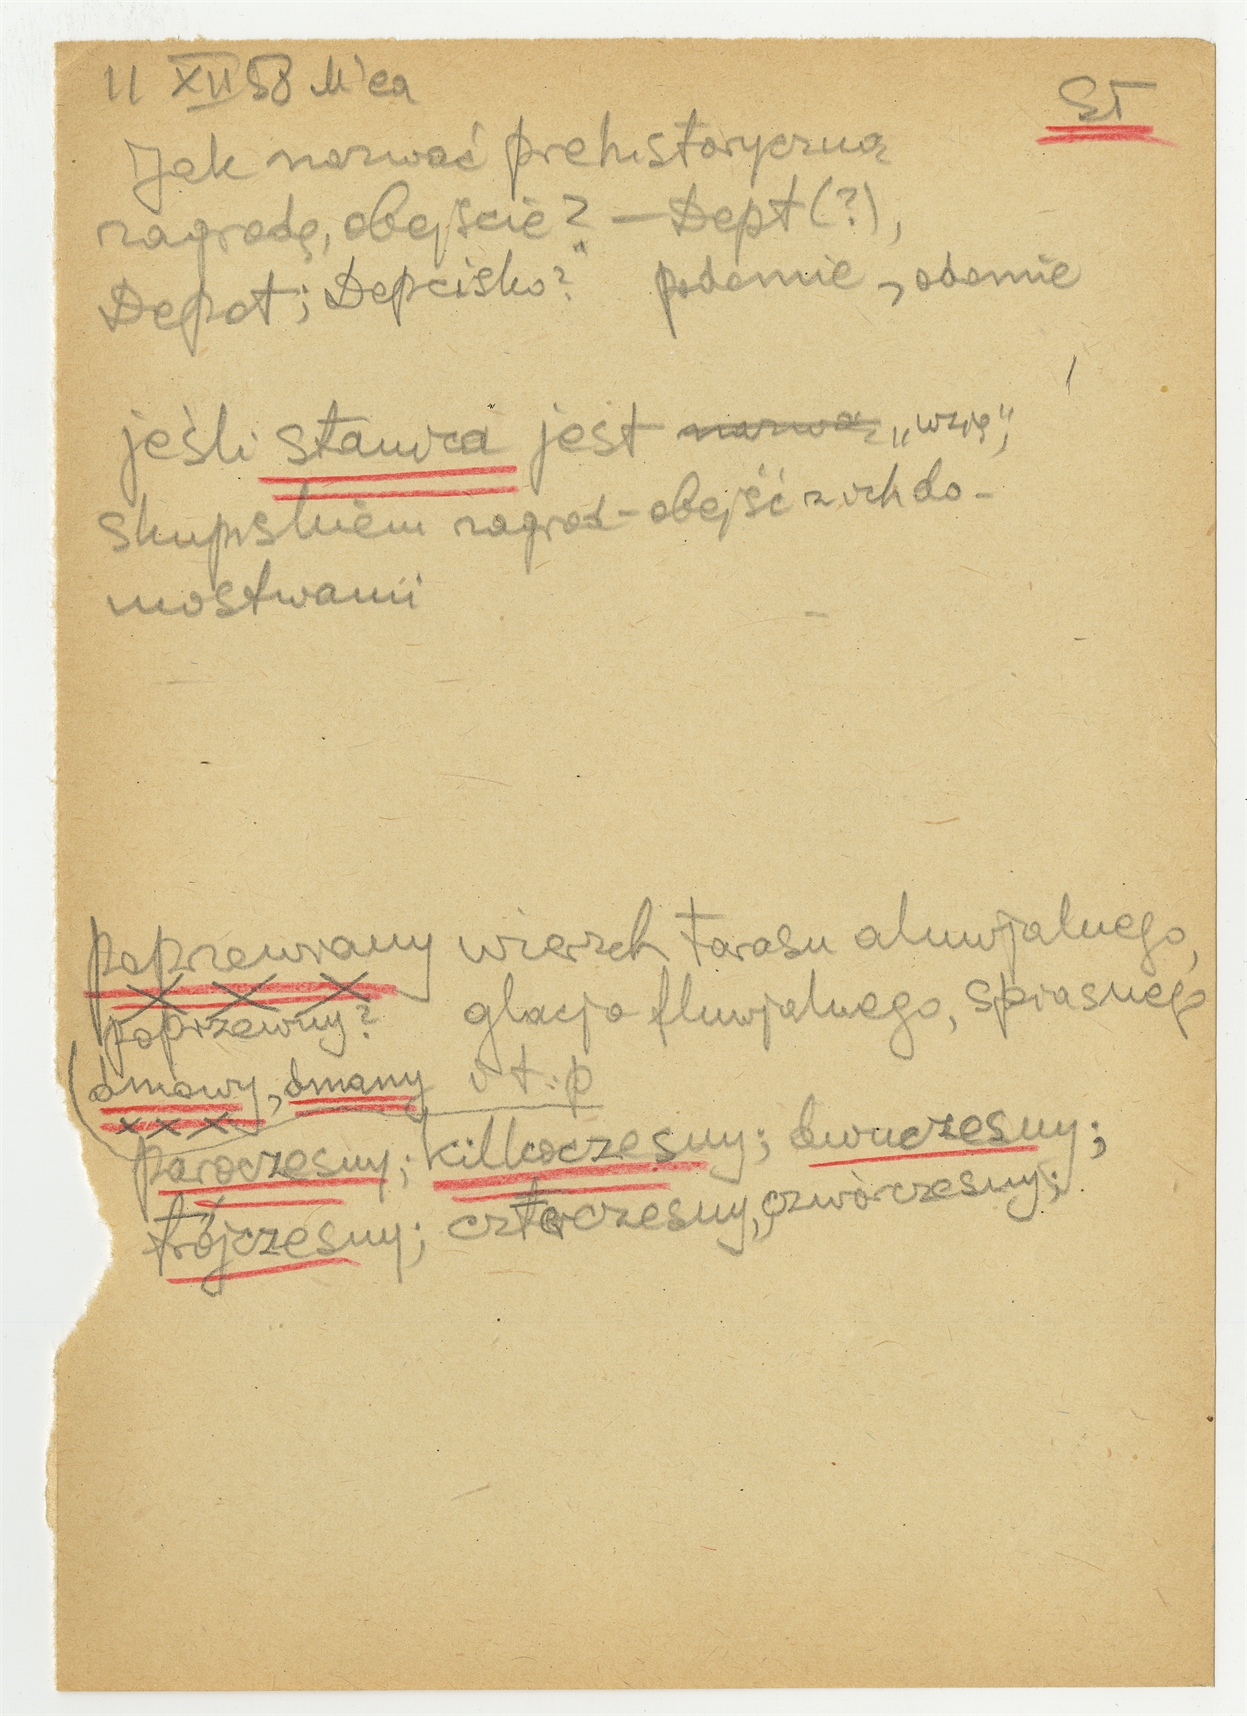 11 XII 58 M'ca
St
Jak nazwać prehistoryczną
zagrodę, obejście? — Dept (?),
Depot; Depcisko? podomie, odomie
jeśli stawica jest nazwą „wzię”,
skupiskiem zagrod-obejść z ich do-
mostwami
poprzewiany wierzch tarasu aluwjalnego,
poprzewny? glacjo fluwjalnego, spiasnego
dmowy, dmany i t.p
paroczesny; kilkoczesny; dwuczesny;
trójczesny; czteroczesny, czwórczesny;